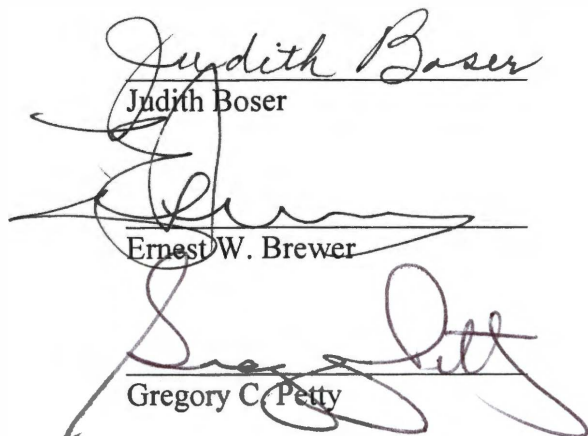 Judith Boser
Judith Boser
Ernest W. Brewer
Gregory C. Petty
Gregory C. Petty